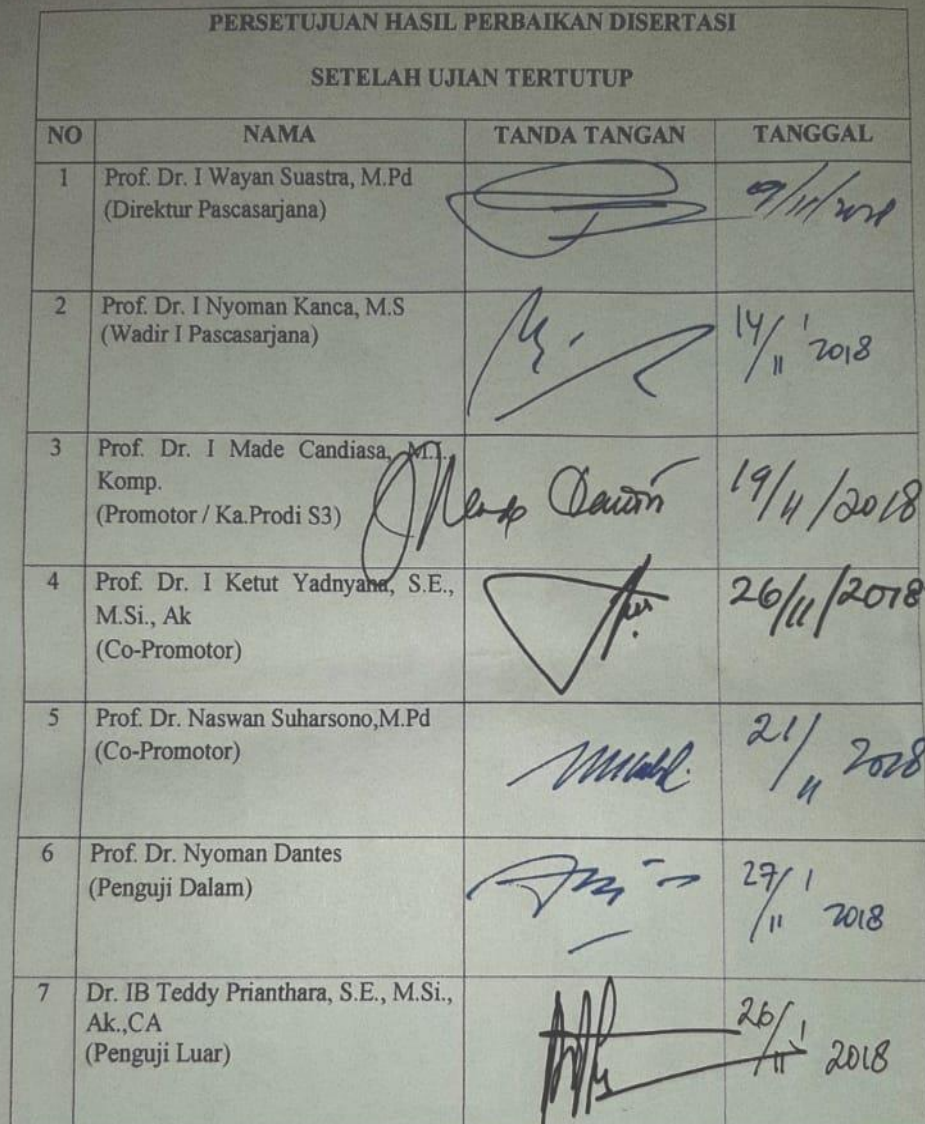 PERSETUJUAN HASIL PERBAIKAN DISERTASI
SETELAH UJIAN TERTUTUP
NO NAMA TANDA TANGAN TANGGAL
1 Prof. Dr. I Wayan Suastra, M.Pd
(Direktur Pascasarjana)
2 Prof. Dr. I Nyoman Kanca, M.S
(Wadir I Pascasarjana)
14/11 2018
3 Prof. Dr. I Made Candiasa, M.I.
Komp.
(Promotor / Ka.Prodi S3)
19/11/2018
4 Prof. Dr. I Ketut Yadnyana, S.E.,
M.Si., Ak
(Co-Promotor)
26/11/2018
5 Prof. Dr. Naswan Suharsono,M.Pd
(Co-Promotor)
21/11 2018
6 Prof. Dr. Nyoman Dantes
(Penguji Dalam)
27/11 2018
7 Dr. IB Teddy Prianthara, S.E., M.Si.,
Ak.,CA
(Penguji Luar)
26/11 2018